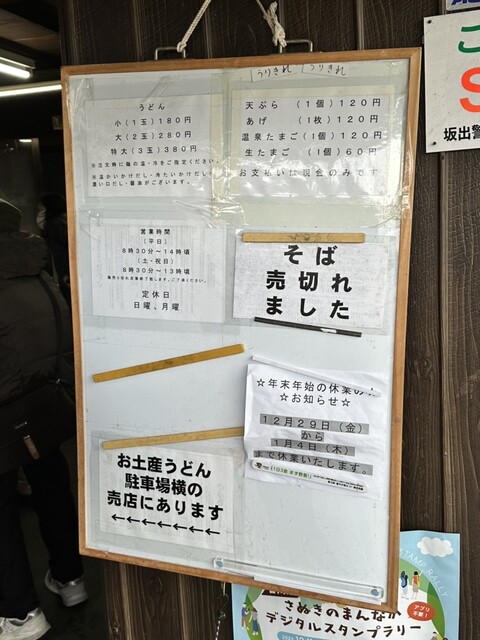 うりきれ うりきれ
うどん
小(1玉)180円
大(2玉)280円
特大(3玉)380円
※注文時に麺の温・冷をご指定ください。
※温かいかけだし・冷たいかけだし
濃い口だし・醤油がございます。
天ぷら (1個)120円
あげ (1枚)120円
温泉たまご(1個)120円
生たまご (1個)60円
お支払いは現金のみです
営業時間
(平日)
8時30分~14時頃
(土・祝日)
8時30分~13時頃
定休日
日曜、月曜
そば
売切れ
ました
☆年末年始の休業の
☆お知らせ☆
12月29日(金)
から
1月4日(木)
まで休業いたします。
お土産うどん
駐車場横の
売店にあります
←←←←←←←
坂出警
STAMP RALLY
アプリ
不要!
さぬきのまんなか
デジタルスタンプラリー